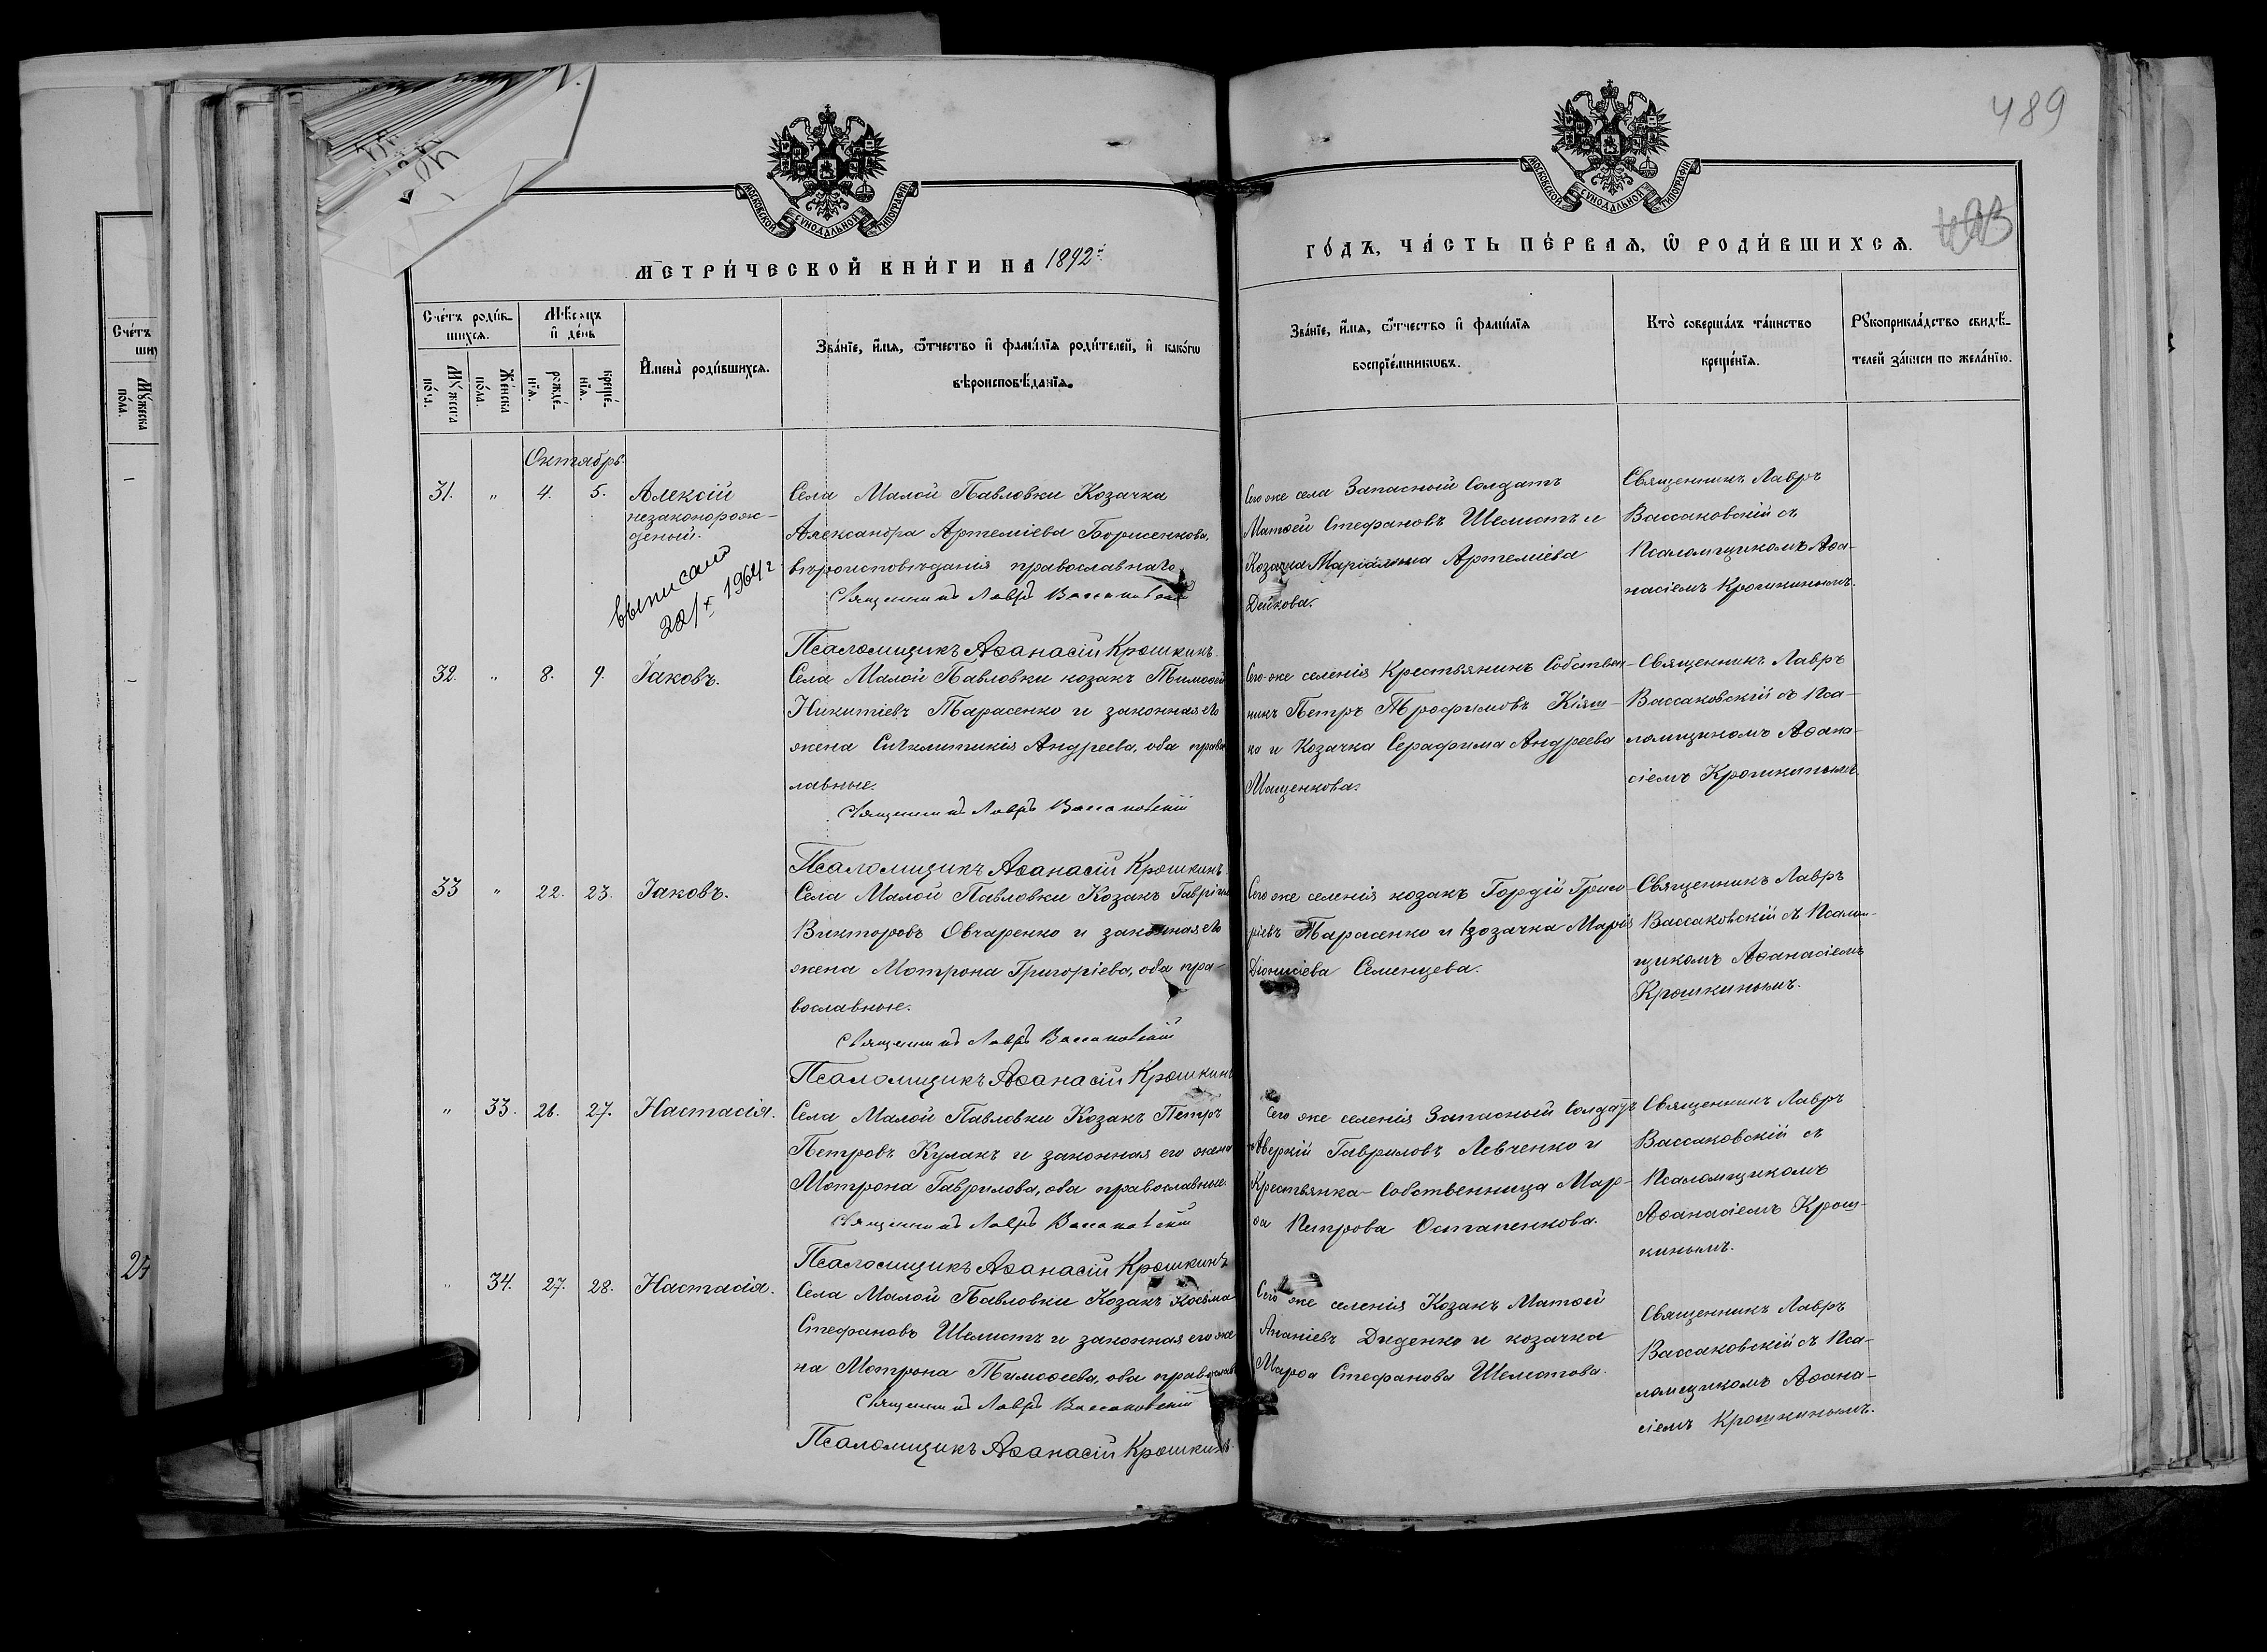 489
493
МОСКОВСКОЙ СѴНОДАЛЬНОЙ ТИПОГРАФІИ
МОСКОВСКОЙ СѴНОДАЛЬНОЙ ТИПОГРАФІИ
МЕТРИ́ЧЕСКОЙ КНИ́ГИ НА 1892й
ГО́ДЪ, ЧА́СТЬ ПЕ́РВАѦ, Ѡ РОДИ́ВШИХСѦ.
Сче́тъ роди́в-
шихсѧ.
Мꙋ́жеска
по́ла.
Же́нска
по́ла.
Мѣ́сѧцъ
и҆ де́нь
рожде́-
нїѧ.
креще́-
нїѧ.
И҆мена̀ роди́вшихсѧ.
Зва́нїе, и҆́мѧ, ѻ҆́тчество и҆ фамі́лїѧ роди́телей, и҆ како́гѡ
вѣроисповѣ́данїѧ.
Зва́нїе, и҆́мѧ, ѻ҆́тчество и҆ фамі́лїѧ
воспрїе́мникѡвъ.
Кто̀ соверша́лъ та́инство
креще́нїѧ.
Рꙋкоприкла́дство свидѣ́-
телей за́писи по жела́нїю.
Октябрь.
31. " 4. 5. Алексій
незаконорож-
деный.
выписано
22/X 1964 г
Села Малой Павловки Козачка
Александра Артеміева Борисенкова,
вѣроисповѣданія православнаго.
Священникъ Лавръ Вассаковскій
Псаломщикъ Аѳанасій Крошкинъ.
Сего же села Запасный Солдатъ
Матѳей Стефановъ Шелистъ и
Козачка Маріамна Артеміева
Дейкова.
Священникъ Лавръ
Вассаковскій съ
Псаломщикомъ Аѳа-
насіемъ Крошкинымъ.
32. " 8. 9. Іаковъ.
Села Малой Павловки козакъ Тимоѳей
Никитіевъ Тарасенко и законная его
жена Сигклитикія Андреева, оба правос
лавные.
Священникъ Лавръ Вассаковскій
Псаломщикъ Аѳанасій Крошкинъ
Сего-же селенія Крестьянинъ Собствен-
никъ Петръ Трофимовъ Кіяш-
ко и Козачка Серафима Андреева
Мащенкова.
Священникъ Лавръ
Вассаковскій съ Пса-
ломщикомъ Аѳана-
сіемъ Крошкинымъ.
33 " 22. 23. Іаковъ.
Села Малой Павловки Козакъ Гавріилъ
Викторовъ Овчаренко и законная его
жена Мотрона Григоріева, оба пра-
вославные.
Священникъ Лавръ Вассаковскій
Псаломщикъ Аѳанасій Крошкинъ
Сего же селенія козакъ Гордій Григо-
ріевъ Тарасенко и козачка Марія
Діонисіева Семенцева.
Священникъ Лавръ
Вассаковскій съ Псалом-
щикомъ Аѳанасіемъ
Крошкинымъ.
" 33. 26. 27. Настасія.
Села Малой Павловки Козакъ Петръ
Петровъ Кулакъ и законная его жена
Мотрона Гаврилова, оба православные.
Священникъ Лавръ Вассаковскій
Псаломщикъ Аѳанасій Крошкинъ
Сего же селенія Запасный Солдатъ
Аверкій Гавриловъ Левченко и
Крестьянка-Собственница Мар-
ѳа Петрова Остапенкова.
Священникъ Лавръ
Вассаковскій съ
Псаломщикомъ
Аѳанасіемъ Крош-
кинымъ.
" 34. 27. 28. Настасія.
Села Малой Павловки Козакъ Косьма
Стефановъ Шелистъ и законная его же
на Мотрона Тимоѳеева, оба православ
Священникъ Лавръ Вассаковскій
Псаломщикъ Аѳанасій Крошкинъ.
Сего же селенія Козакъ Матѳей
Ананіевъ Диденко и козачка
Марѳа Стефанова Шелистова.
Священникъ Лавръ
Вассаковскій съ Пса-
ломщикомъ Аѳана-
сіемъ Крошкинымъ.